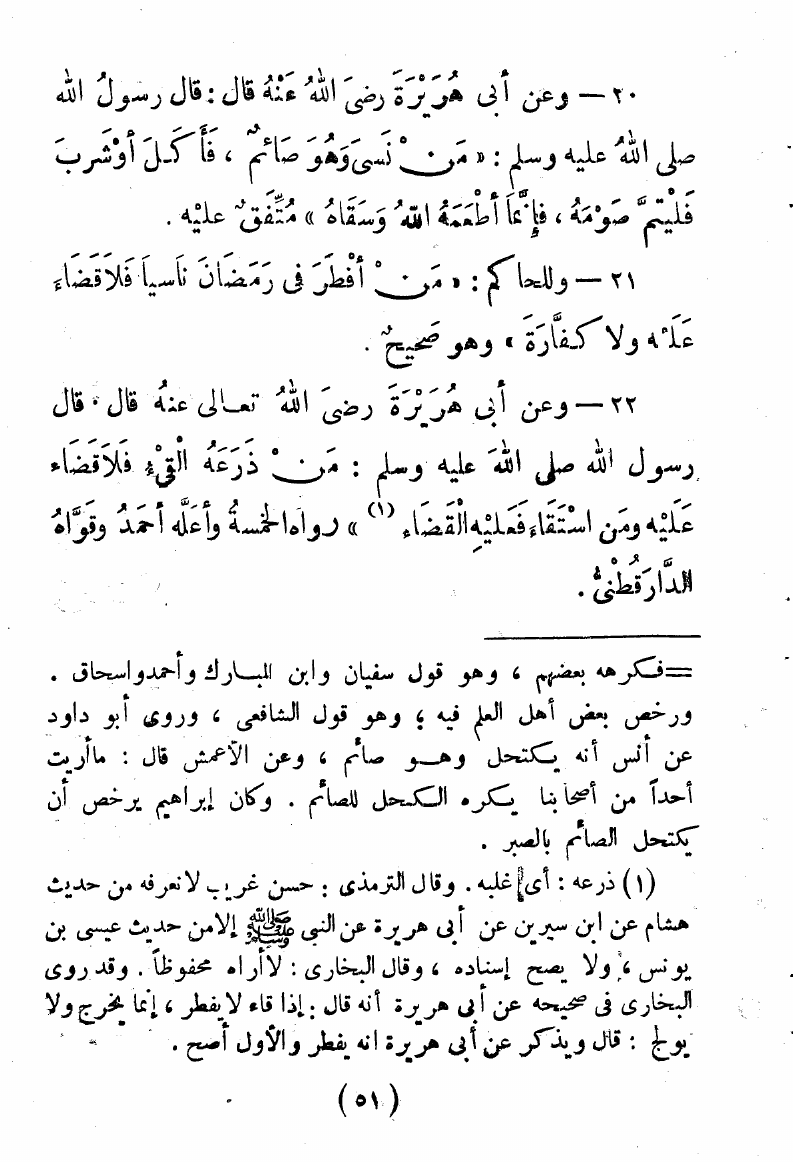 ٢٠ — وعن أبى هُرَيْرَةَ رضىَ اللهُ عَنْهُ قال : قال رسولُ الله
صلى اللهُ عليه وسلم : « مَنْ نَسىَ وَهُوَ صَائمٌ ، فَأَكَلَ أوْ شَربَ
فَلْيُتمَّ صَوْمَهُ ، فإِنَّمَا أطْعَمَهُ اللهُ وَسَقَاهُ » مُتَّفَقٌ عليْه .
٢١ — وللحاكم : « مَنْ أفْطَرَ فى رَمَضَانَ نَاسياَ فَلاَ قَضَاءَ
عَلَيْه ولا كَفَّارَةَ » وهو صَحيحٌ .
٢٢ — وعن أبى هُرَيْرَةَ رضىَ اللهُ تعالى عنهُ قال · قال
رسول الله صلى اللهَ عليه وسلم : مَنْ ذَرَعَهُ الْقَىْءُ فلاَ قَضَاء
عَلَيْه ومَن اسْتَقَاءَ فَعَليْهِ الْقَضَاء (١) » رواه الخمسةُ وأعَلَّه أحمَدُ وقوَّاهُ
الدَّارَقُطْنىُّ .
=فكرهه بعضهم ، وهو قول سفيان وابن المبارك وأحمد واسحاق .
ورخص بعض أهل العلم فيه ؛ وهو قول الشافعى ، وروى أبو داود
عن أنس أنه يكتحل وهو صائم ، وعن الأعمش قال : مأأريت
أحداً من أصحابنا يكره الكحل للصائم . وكان إبراهيم يرخص أن
يكتحل الصائم بالصبر .
(١) ذرعه : أى غلبه . وقال الترمذى : حسن غريب لانعرفه من حديث
هشام عن ابن سيرين عن أبى هريرة عن النبى ﷺ إلامن حديث عيسى بن
يونس ، ولا يصح إسناده ، وقال البخارى : لاأراه محفوظاً . وقد روى
البخارى فى صحيحه عن أبى هريرة أنه قال : إذا قاء لايفطر ، إنما يخرج ولا
يولج : قال ويذكر عن أبى هريرة انه يفطر والأول أصح .
(٥١)